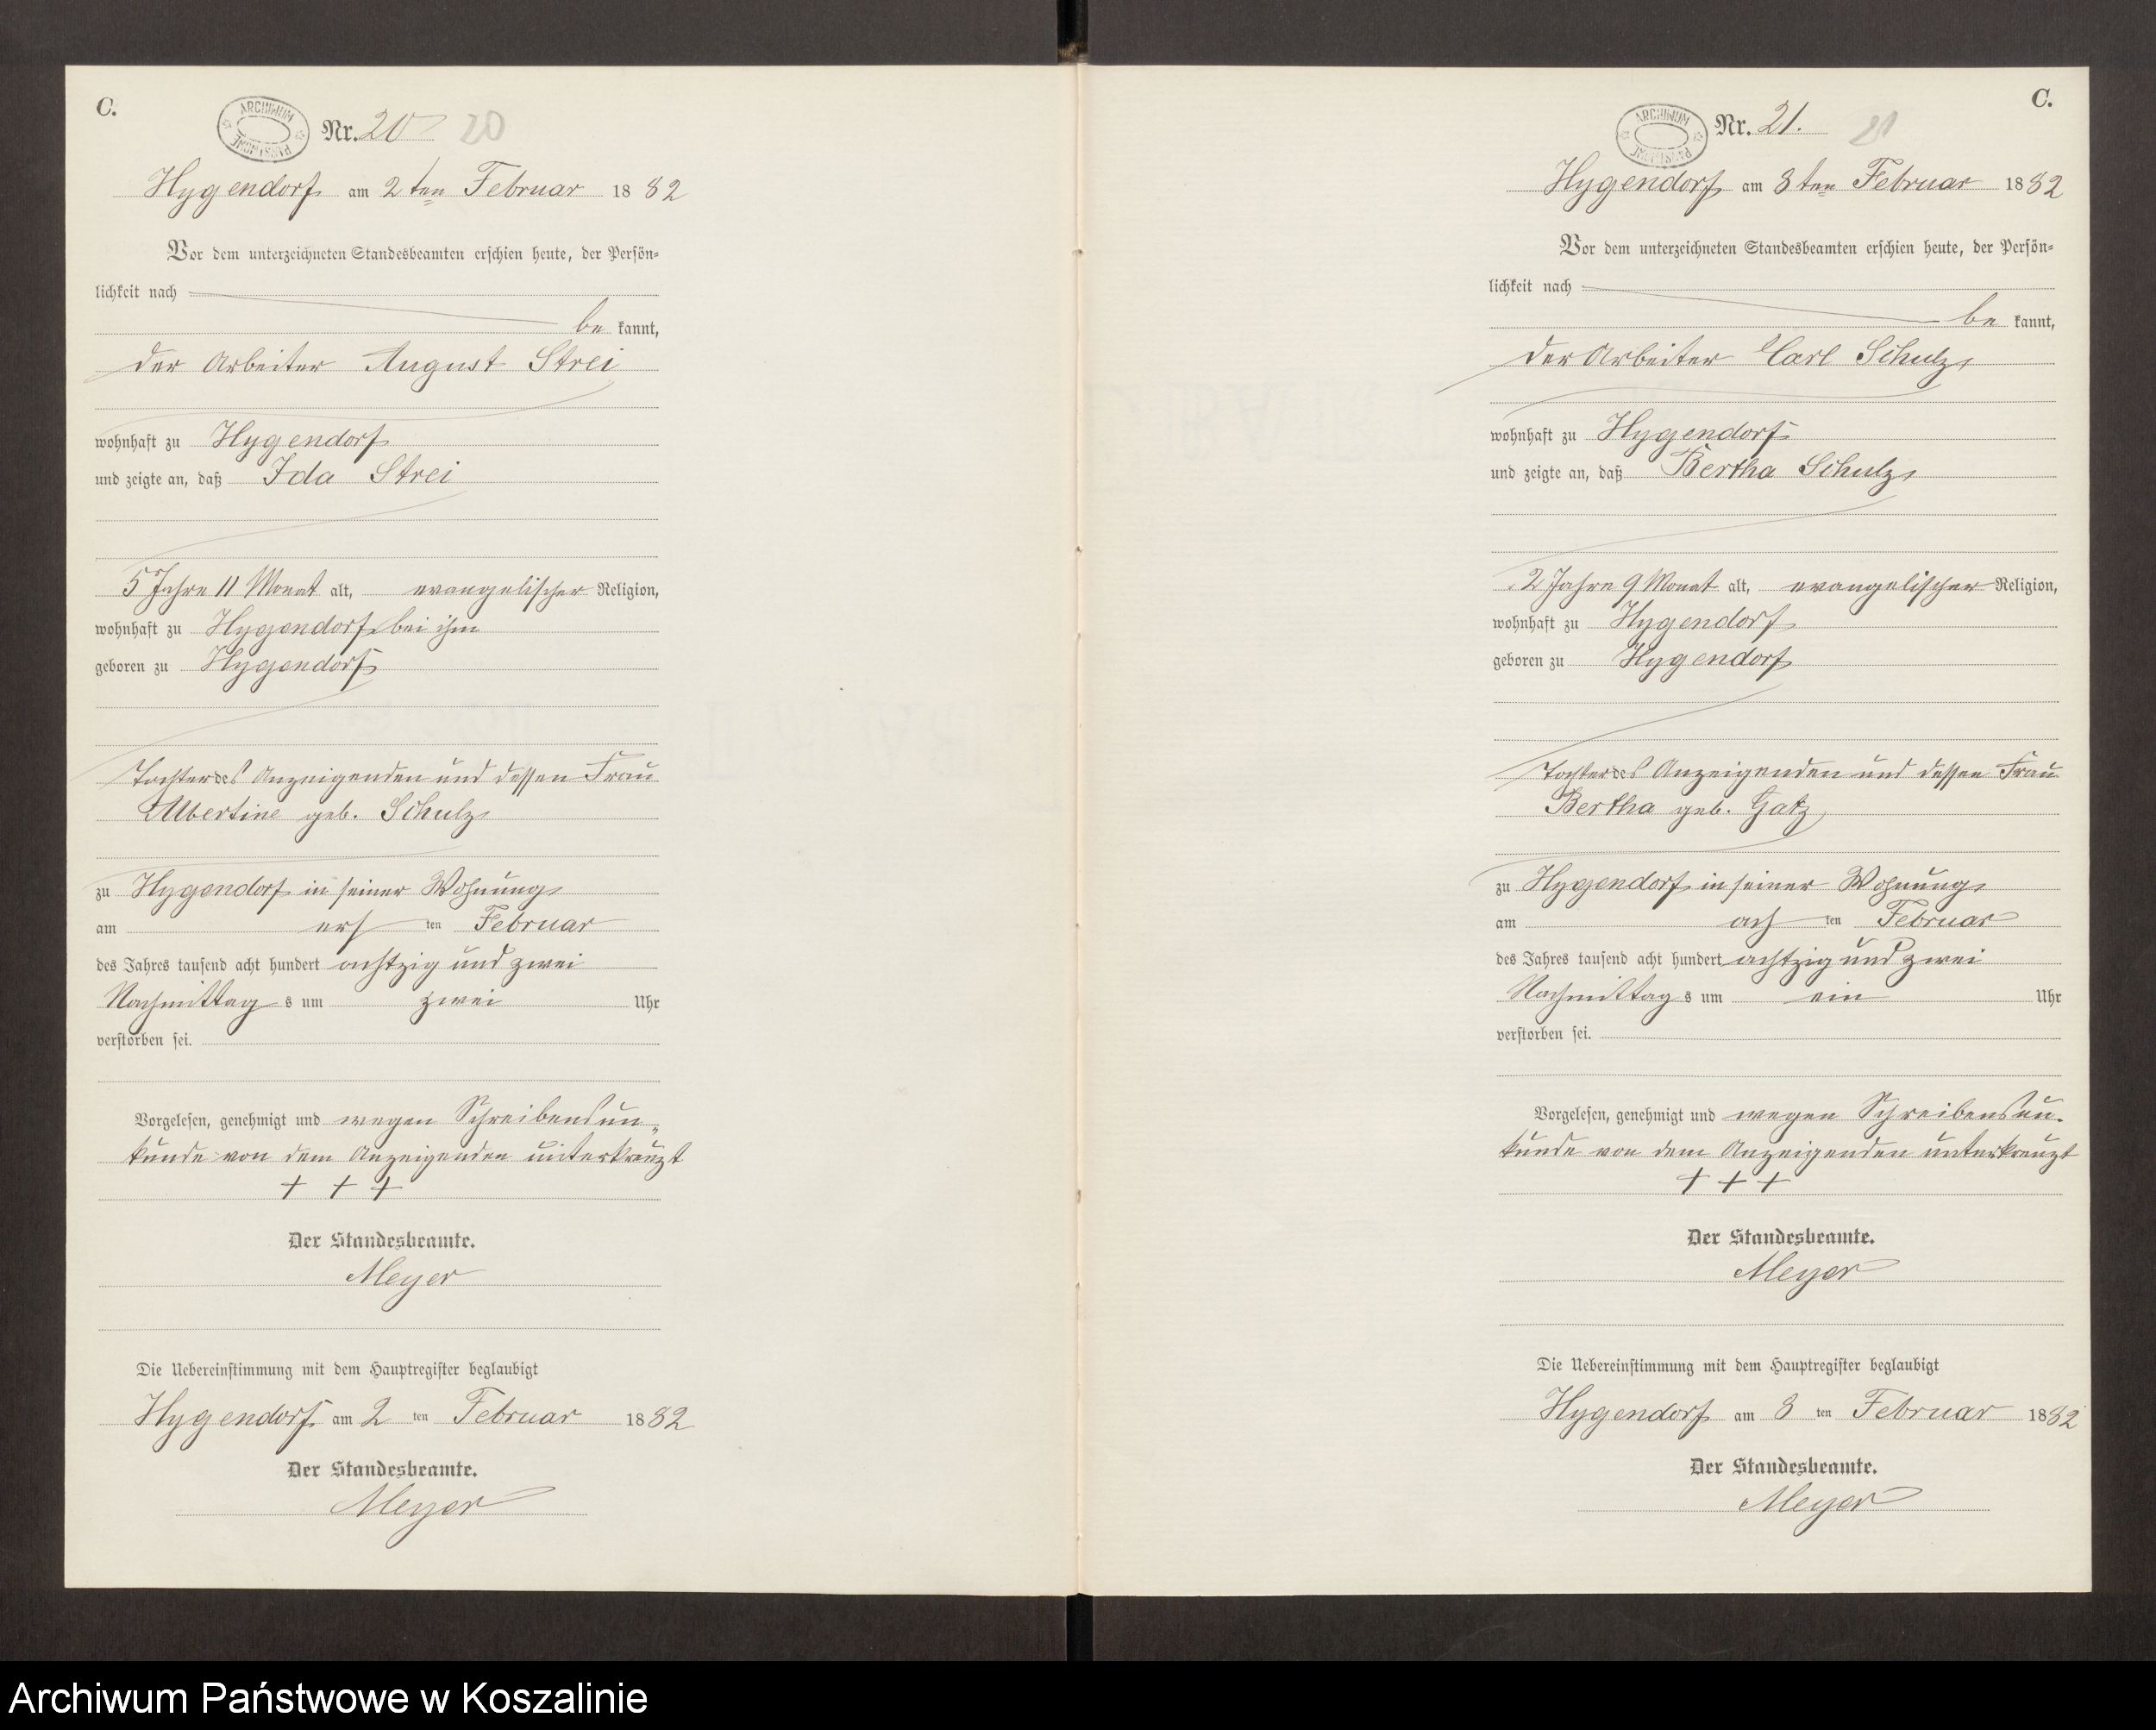 C.
ARCHIWUM PAŃSTWOWE
Nr. 20 20
Hygendorf am 2ten Februar 1882
Vor dem unterzeichneten Standesbeamten erschien heute, der Persön-
lichkeit nach
be kannt,
der Arbeiter August Strei
wohnhaft zu Hygendorf
und zeigte an, daß Ida Strei
5 Jahre 11 Monat alt, evangelischer Religion,
wohnhaft zu Hygendorf bei ihm
geboren zu Hygendorf
Tochter des Anzeigenden und dessen Frau
Albertine geb. Schulz
zu Hygendorf in seiner Wohnung
am ers ten Februar
des Jahres tausend acht hundert achtzig und zwei
Nachmittag s um zwei Uhr
verstorben sei.
Vorgelesen, genehmigt und wegen Schreibensun-
kunde von dem Anzeigenden unterkreuzt
+ + +
Der Standesbeamte.
Meyer
Die Uebereinstimmung mit dem Hauptregister beglaubigt
Hygendorf am 2 ten Februar 1882
Der Standesbeamte.
Meyer
C.
ARCHIWUM PAŃSTWOWE
Nr. 21. 21
Hygendorf am 8ten Februar 1882
Vor dem unterzeichneten Standesbeamten erschien heute, der Persön-
lichkeit nach
be kannt,
der Arbeiter Carl Schulz
wohnhaft zu Hygendorf
und zeigte an, daß Bertha Schulz
2 Jahre 9 Monat alt, evangelischer Religion,
wohnhaft zu Hygendorf
geboren zu Hygendorf
Tochter des Anzeigenden und dessen Frau
Bertha geb. Gatz
zu Hygendorf in seiner Wohnung
am ach ten Februar
des Jahres tausend acht hundert achtzig und zwei
Nachmittag s um ein Uhr
verstorben sei.
Vorgelesen, genehmigt und wegen Schreibensun-
kunde von dem Anzeigenden unterkreuzt
+ + +
Der Standesbeamte.
Meyer
Die Uebereinstimmung mit dem Hauptregister beglaubigt
Hygendorf am 8 ten Februar 1882
Der Standesbeamte.
Meyer
Archiwum Państwowe w Koszalinie